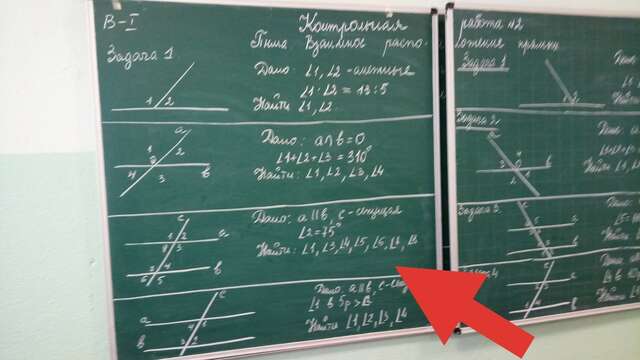 В-I
Контрольная работа №2
Тема: Взаимное расположение прямых
Задача 1.
Дано: ∠1, ∠2 - смежные
∠1 : ∠2 = 13 : 5
Найти ∠1, ∠2.
1 2
Дано: a∩b=O
∠1+∠2+∠3 = 310°
Найти: ∠1, ∠2, ∠3, ∠4
a
1
2
4
3
b
Дано: a∥b, c-секущая
∠2=75°
Найти: ∠1, ∠3, ∠4, ∠5, ∠6,
c
1 2
a
4 3
b
6 5
Дано: a∥b,
∠1 в 5р >
Найти ∠1, ∠2, ∠3, ∠4
c
a
4 1
b
2 3
Задача 1
Дано
Задача 2
Дано:
a
3
b
Задача 3.
c
a
b
c